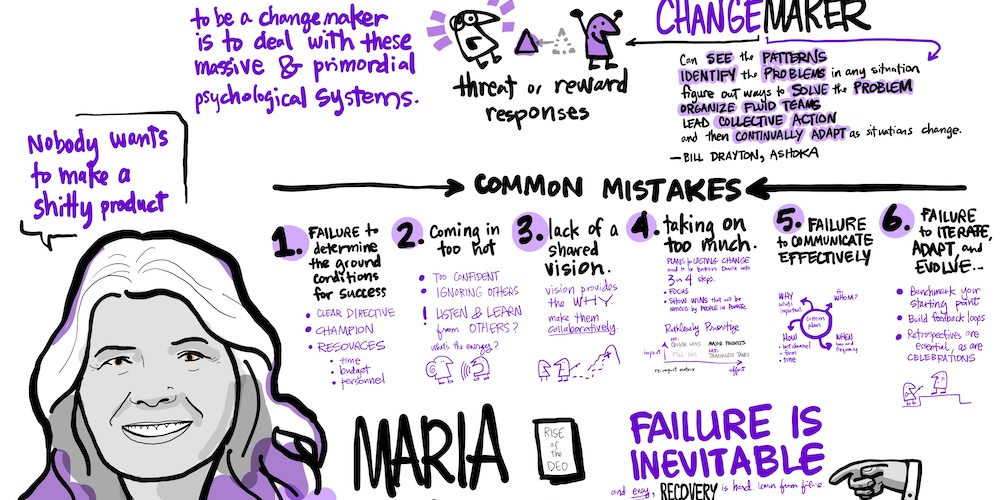 to be a changemaker
is to deal with these
massive & primordial
psychological systems.
threat or reward
responses
CHANGEMAKER
Can SEE the PATTERNS
IDENTIFY the PROBLEMS in any situation
figure out ways to SOLVE the PROBLEM
ORGANIZE FLUID TEAMS
LEAD COLLECTIVE ACTION
and then CONTINUALLY ADAPT as situations change.
— BILL DRAYTON, ASHOKA
Nobody wants
to make a
shitty product
COMMON MISTAKES
1. FAILURE to
determine
the ground
conditions
for success
• CLEAR DIRECTIVE
• CHAMPION
• RESOURCES
• time
• budget
• personnel
2. Coming in
too hot
• TOO CONFIDENT
• IGNORING OTHERS
! LISTEN & LEARN
from OTHERS?
whats the energy?
3. lack of a
shared
vision.
vision provides
the WHY.
make them
collaboratively.
4. taking on
too much.
PLANS for LASTING CHANGE
need to be broken down into
3 or 4 steps.
• FOCUS
• SHOW WINS that will be
NOTICED by PEOPLE IN POWER
Ruthlessly Prioritize
QUICK WINS
MAJOR PROJECTS
FILL INS
THANKLESS TASKS
impact
effort
5. FAILURE
to COMMUNICATE
EFFECTIVELY
WHY
what's
important
for
WHOM?
comm
plan
HOW
• best channel
• tone
• time
WHEN
time and
frequency
6. FAILURE
to ITERATE,
ADAPT, and
EVOLVE...
• Benchmark your
starting point
• Build feedback loops
• Retrospectives are
essential, as are
CELEBRATIONS
MARIA
RISE
of the
DEO
FAILURE IS
INEVITABLE
and easy, RECOVERY is hard. learn from